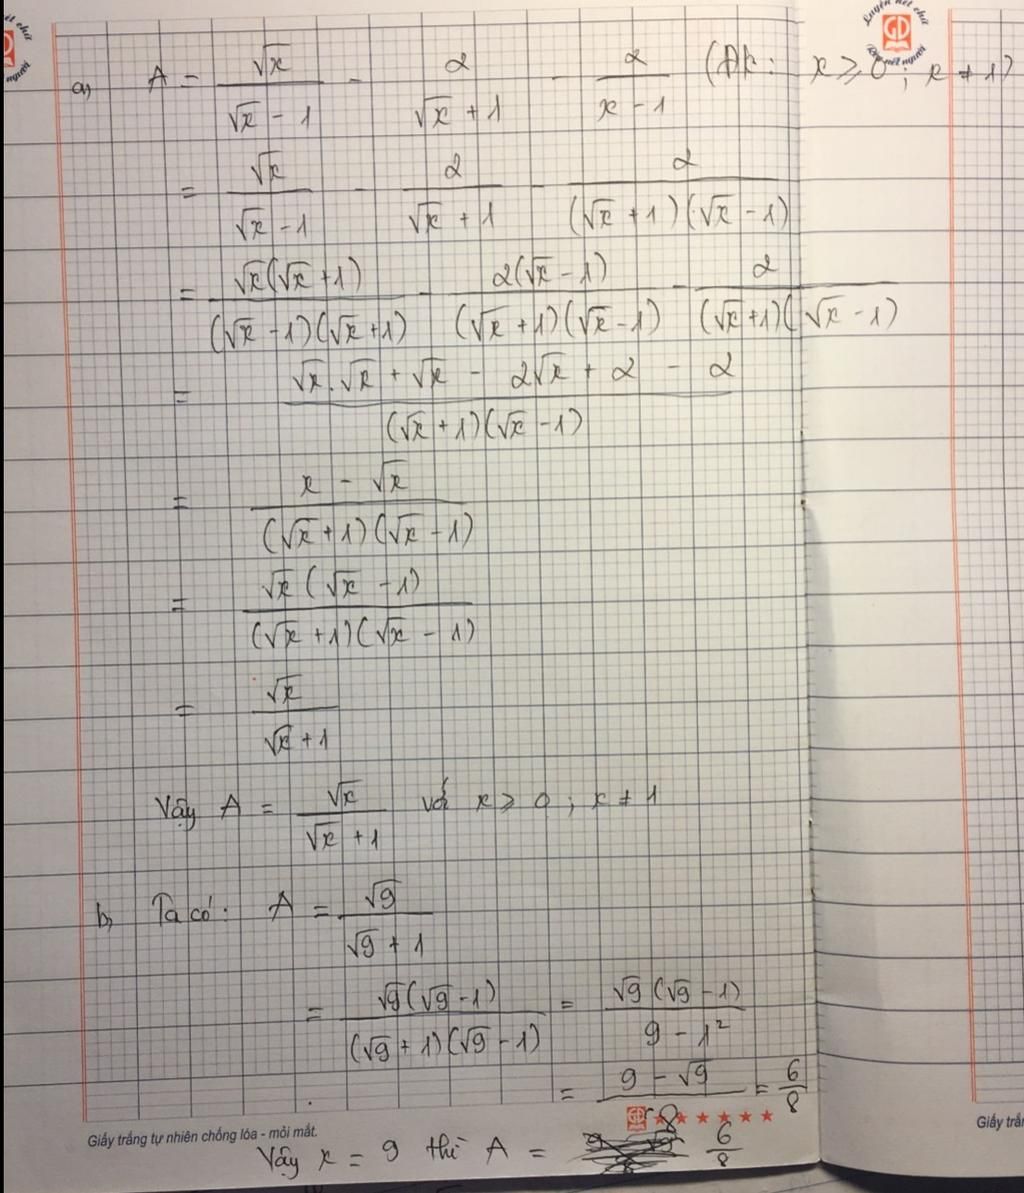 Luyện nét chữ
GD
Rèn nét người
a, A = √x/(√x - 1) - 2/(√x + 1) - 2/(x - 1) (Đk: x ≥ 0; x ≠ 1)
= √x/(√x - 1) - 2/(√x + 1) - 2/((√x + 1)(√x - 1))
= √x(√x + 1)/((√x - 1)(√x + 1)) - 2(√x - 1)/((√x + 1)(√x - 1)) - 2/((√x + 1)(√x - 1))
= (√x.√x + √x - 2√x + 2 - 2)/((√x + 1)(√x - 1))
= (x - √x)/((√x + 1)(√x - 1))
= √x(√x - 1)/((√x + 1)(√x - 1))
= √x/(√x + 1)
Vậy A = √x/(√x + 1) với x ≥ 0; x ≠ 1
b, Ta có: A = √9/(√9 + 1)
= √9(√9 - 1)/((√9 + 1)(√9 - 1)) = √9(√9 - 1)/(9 - 1²)
= (9 - √9)/8 = 6/8
GD
Giấy trắng tự nhiên chống lóa - mỏi mắt.
Giấy trắ
Vậy x = 9 thì A = 6/8